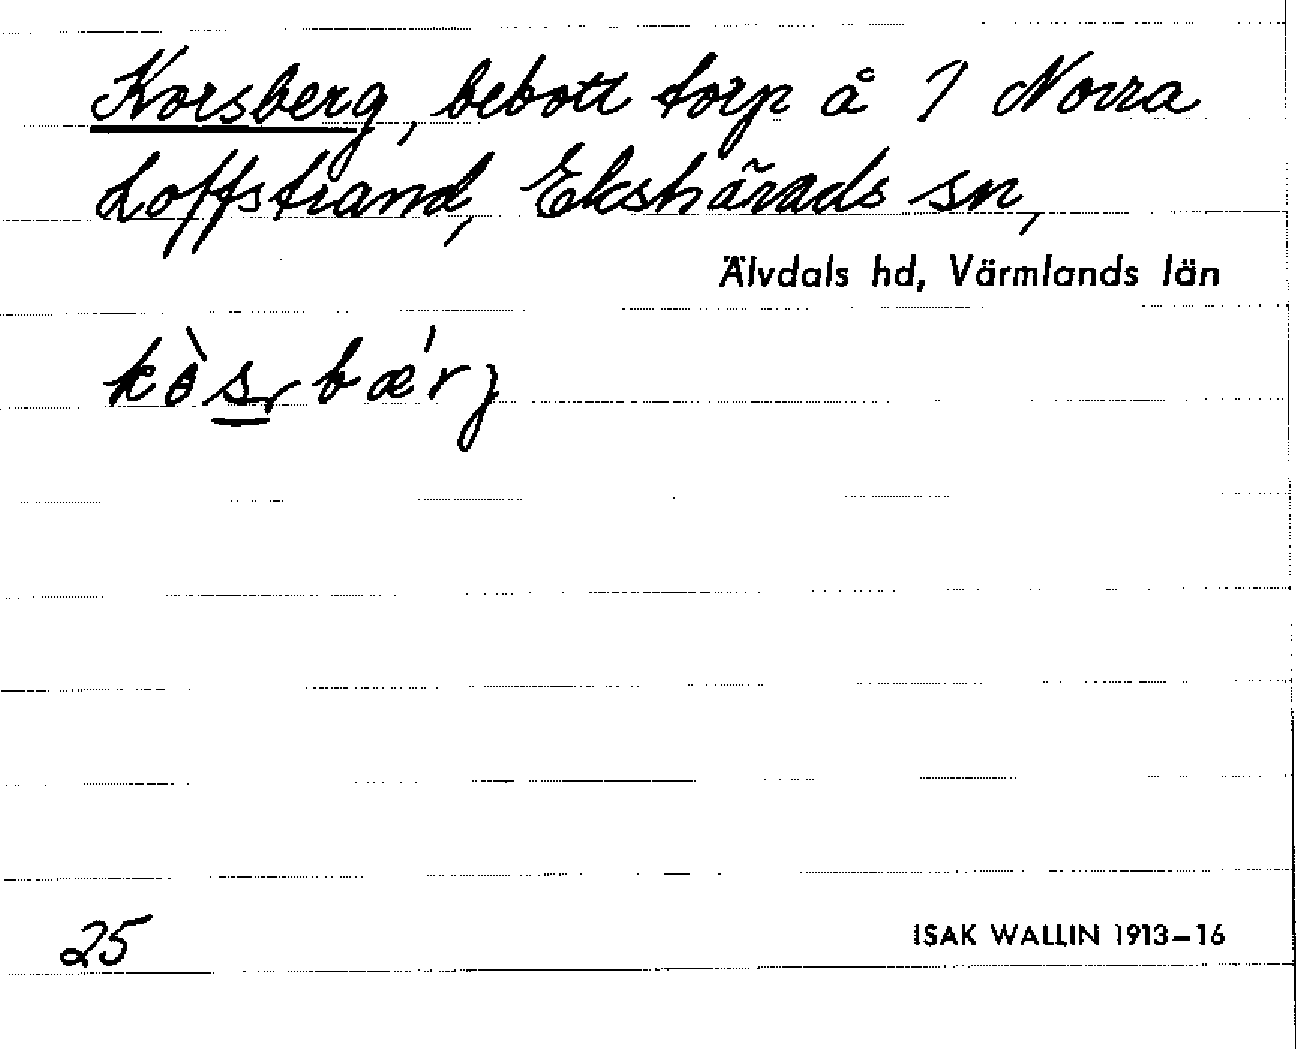 Korsberg, bebott torp å 7 Norra
Loffstrand, Ekshärads sn,
Älvdals hd, Värmlands län
kòsrbærj
25
ISAK WALLIN 1913–16